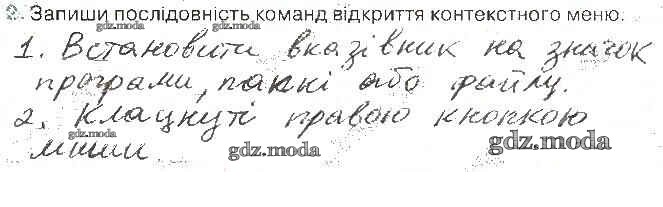 2. Запиши послідовність команд відкриття контекстного меню.
1. Встановити вказівник на значок
програми, папкі або файлу.
2. Клацнуті правою кнопкою
миши
gdz.moda
gdz.moda
gdz.moda
gdz.moda
gdz.moda
gdz.moda
gdz.moda